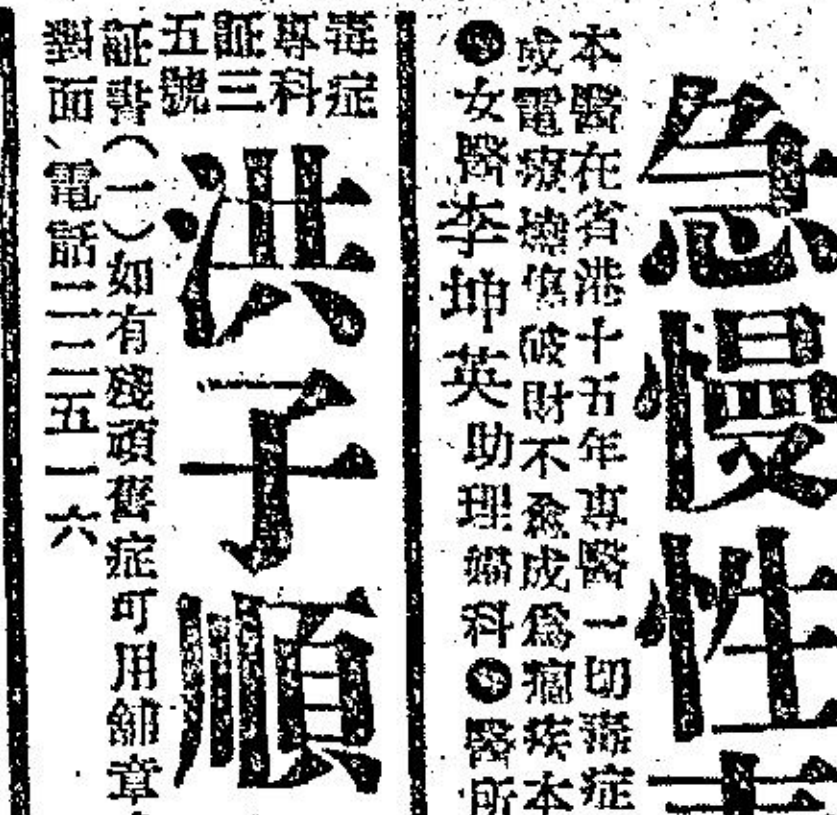 急慢性
本醫在省港十五年專醫一切毒症
或電療 破財不 成為痼疾本
女醫李坤英助理婦科 醫所
毒症
專科
証三
五號
洪子順
証書(一)如有殘頑舊症可用 章
對面、電話二二五一六